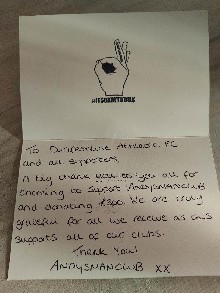 #ITSOKAYTOTALK
To Dunfermline Athletic FC
and all supporters,
A big thank you to you all for
choosing to support ANDYSMANCLUB
and donating £300. We are truly
grateful for all we receive as this
supports all of our clubs.
Thank you!
ANDYSMANCLUB XX